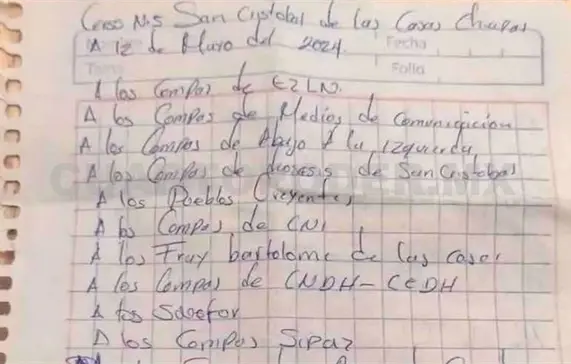 Cerso N.5 San Cristobal de las Casas Chiapas
A 12 de Mayo del 2024.
Fecha
Folio
A los Compas de EZLN.
A los Compas de Medios de Comunicacion
A los Compas de Abajo A la Izquierda
A los Compas de diosesis de San Cristobas
A los Pueblos Creyentes
A los Compas de CNI
A los Fray bartolome de las casas
A los Compas de CNDH-CEDH
A los
A los Compas Sipaz